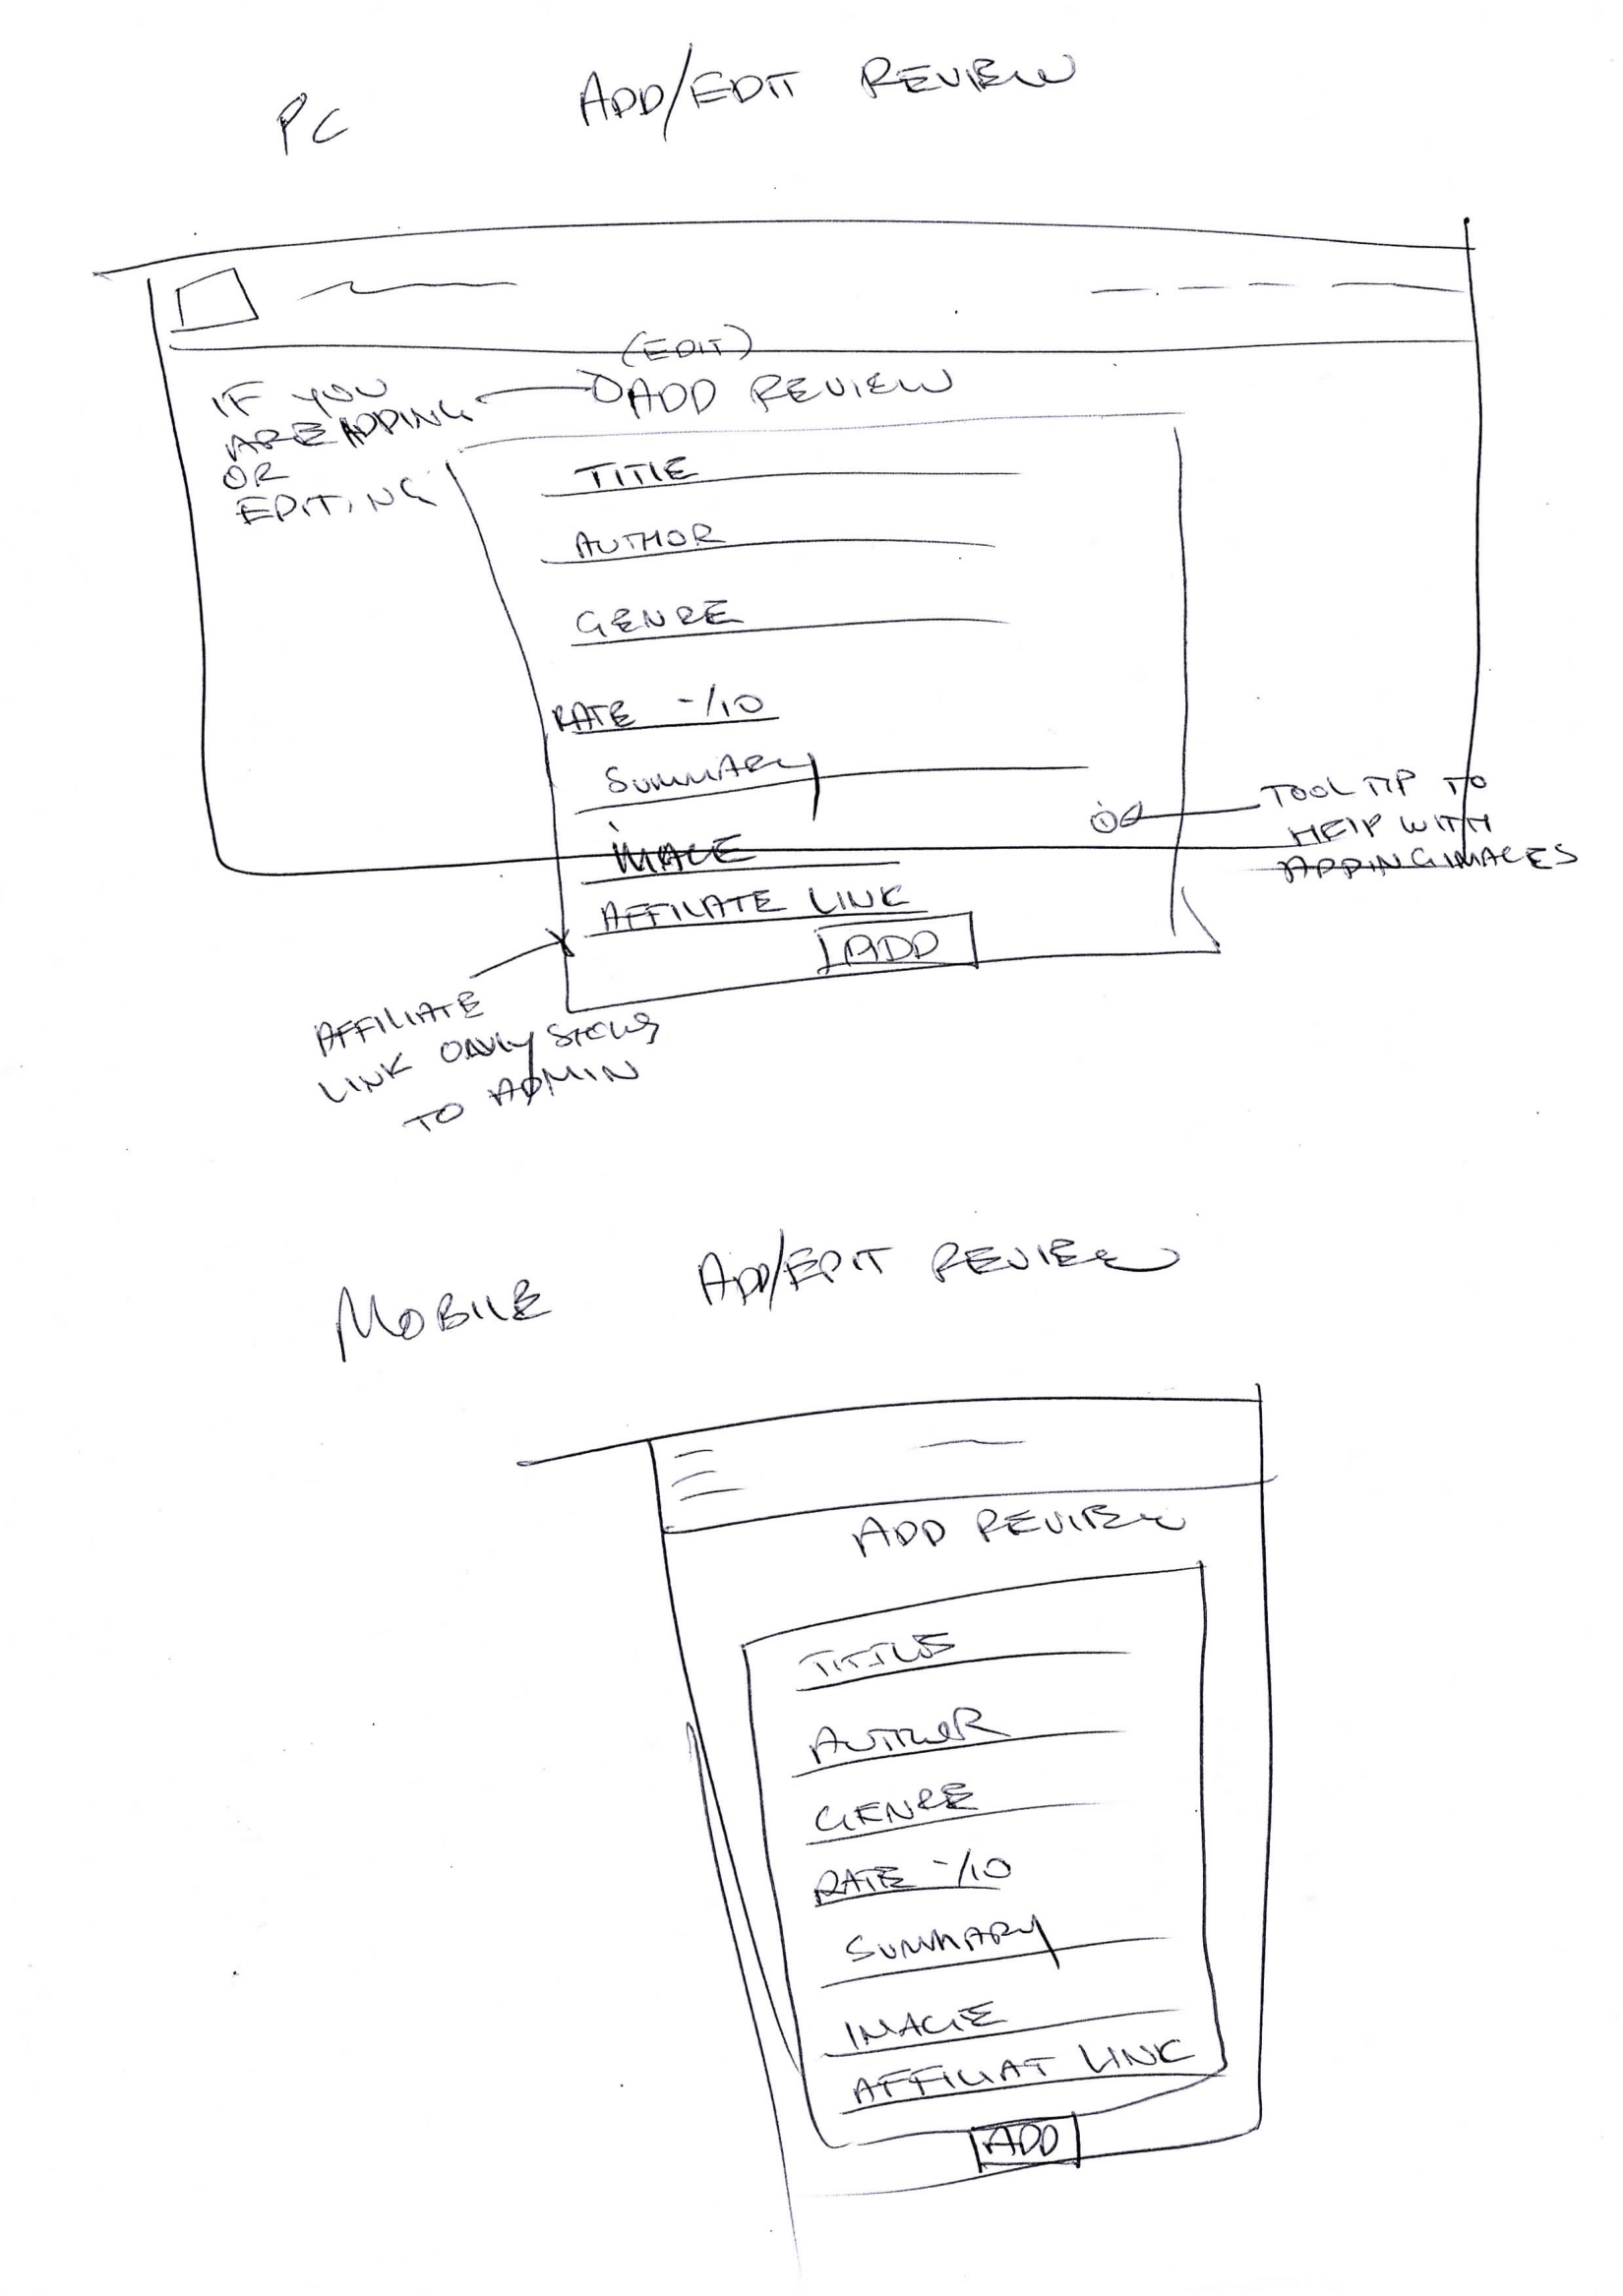 PC
ADD/EDIT REVIEW
(EDIT)
ADD REVIEW
IF YOU
ARE ADDING
OR
EDITING
TITLE
AUTHOR
GENRE
RATE -/10
SUMMARY
IMAGE
AFFILIATE LINK
ADD
i
TOOL TIP TO
HELP WITH
ADDING IMAGES
AFFILIATE
LINK ONLY SHOWS
TO ADMIN
MOBILE
ADD/EDIT REVIEW
ADD REVIEW
TITLE
AUTHOR
GENRE
RATE -/10
SUMMARY
IMAGE
AFFILIAT LINK
ADD